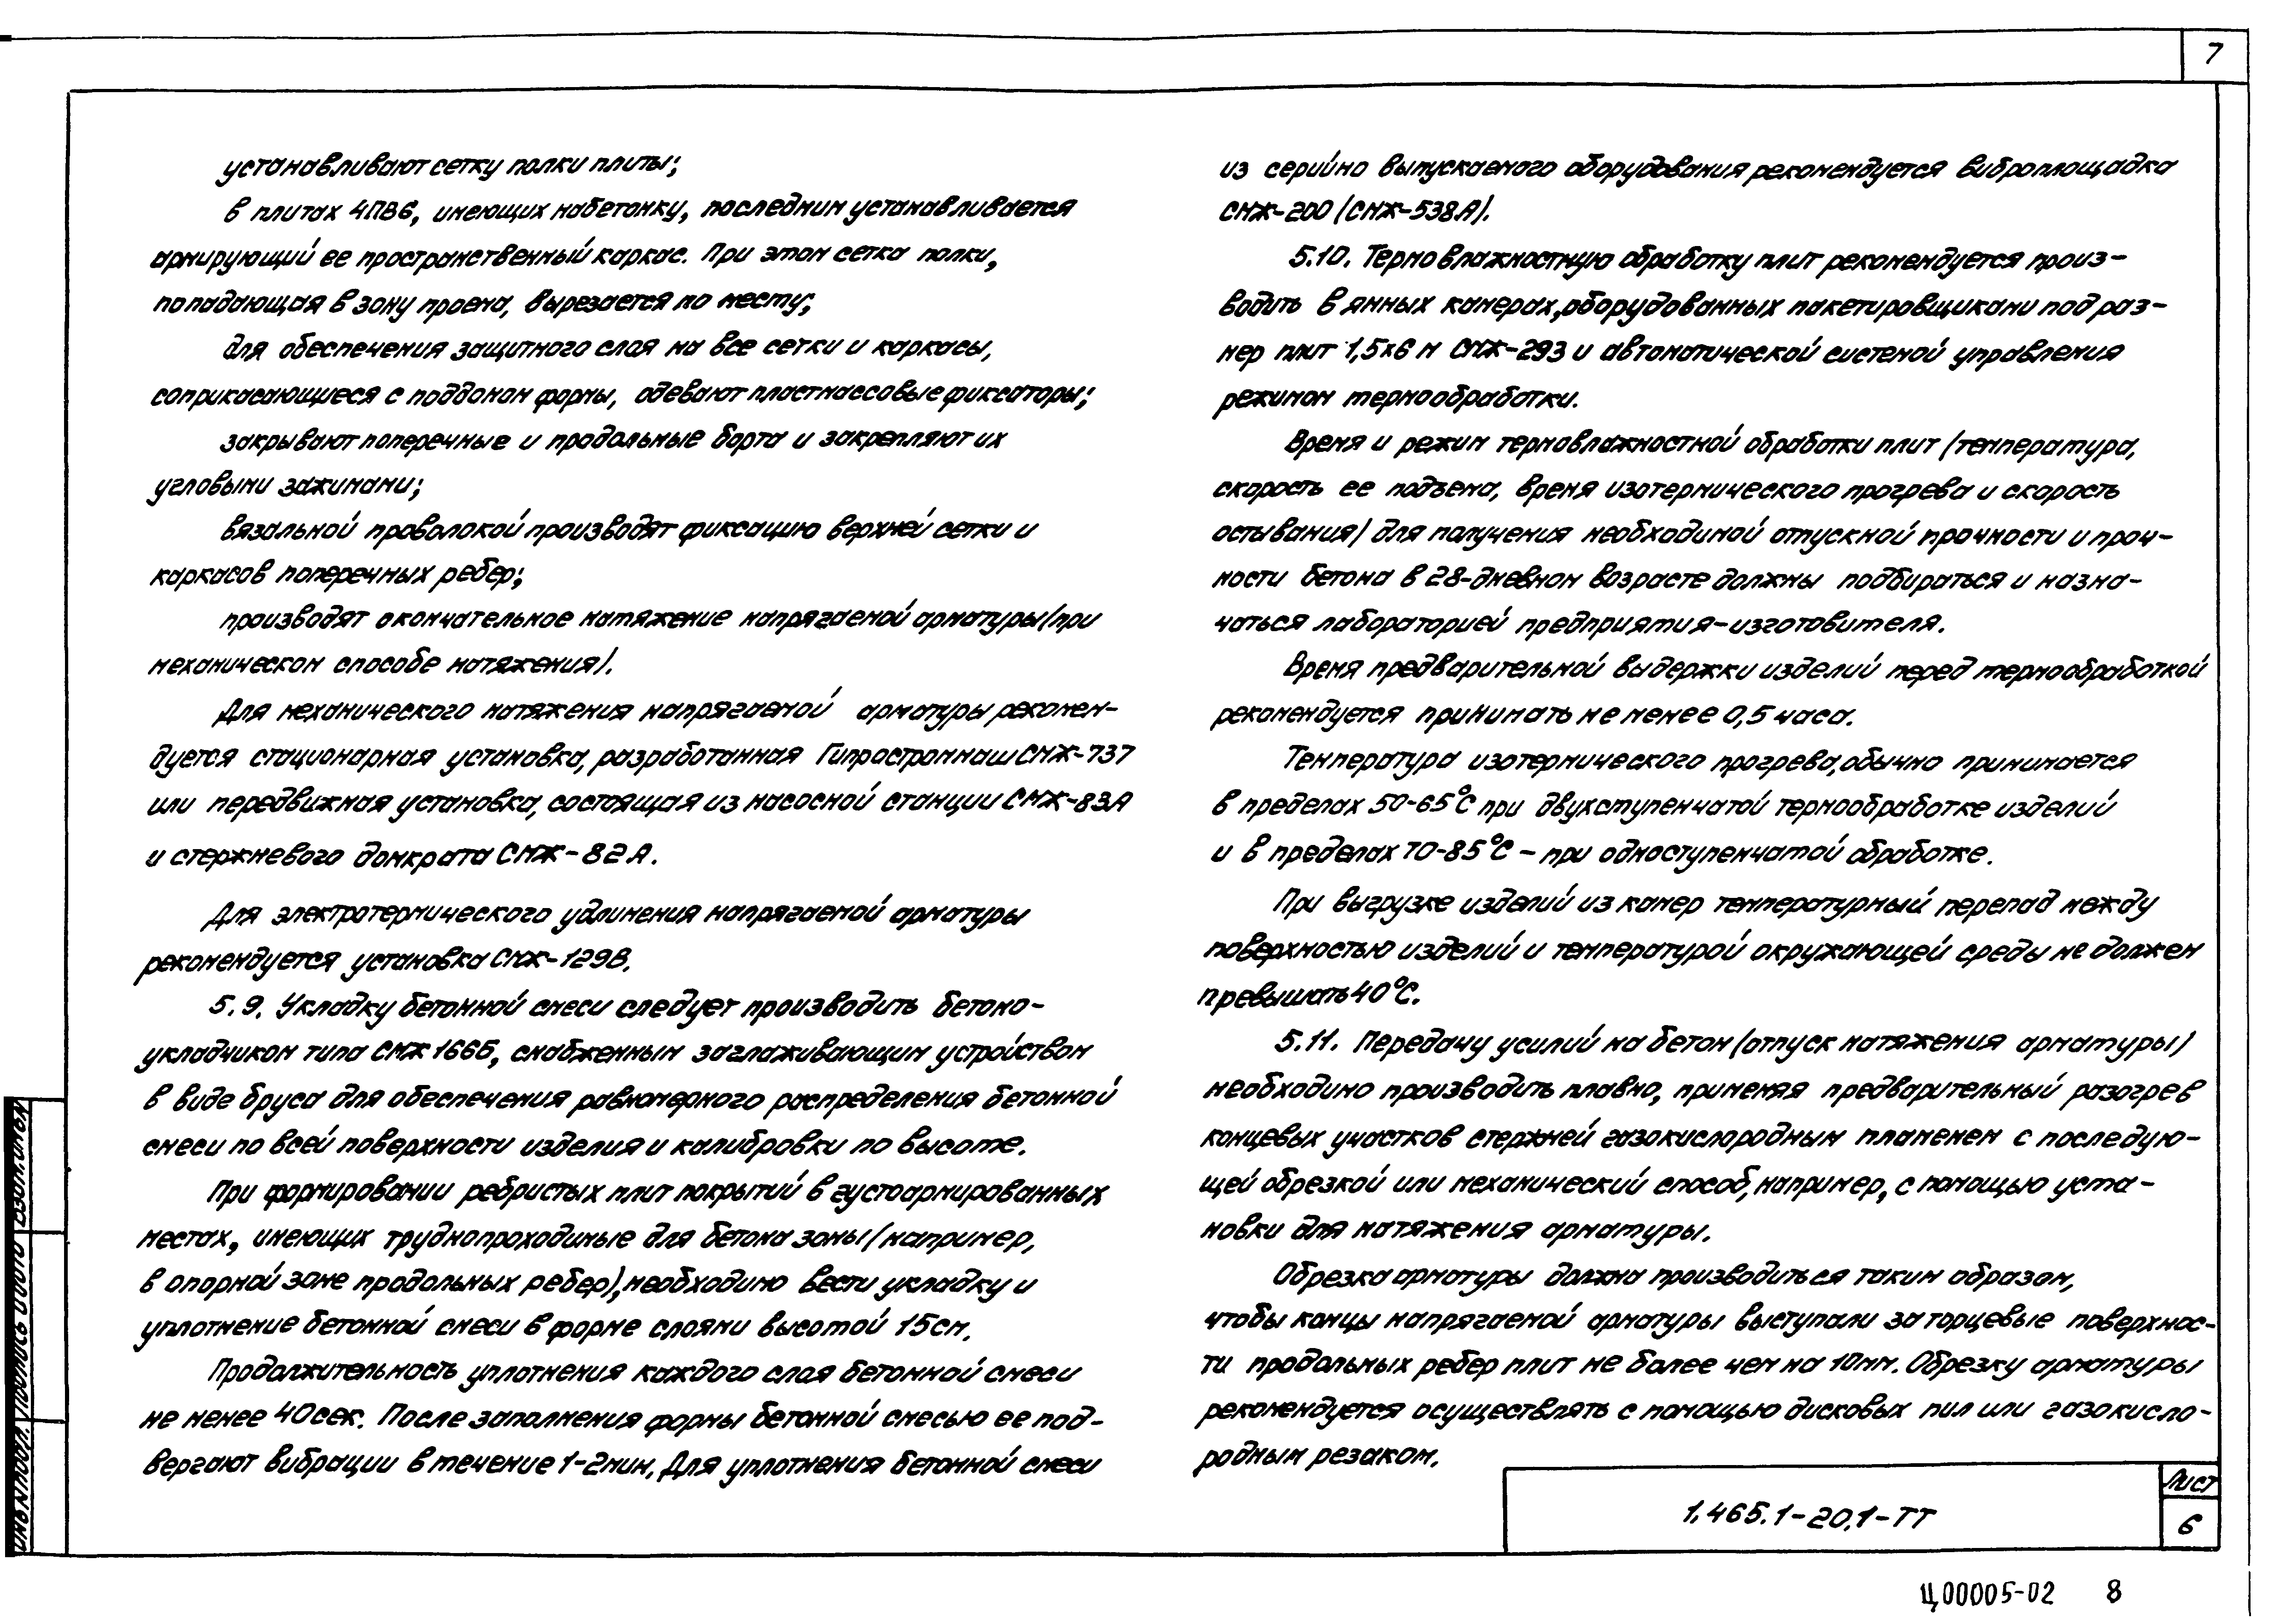 7
устанавливают сетку полки плиты;
в плитах 4ПВ6, имеющих набетонку, последним устанавливается
армирующий ее пространственный каркас. При этом сетка полки,
попадающая в зону проема, вырезается по месту;
для обеспечения защитного слоя на все сетки и каркасы,
соприкасающиеся с поддоном формы, одевают пластмассовые фиксаторы;
закрывают поперечные и продольные борта и закрепляют их
угловыми зажимами;
вязальной проволокой производят фиксацию верхней сетки и
каркасов поперечных ребер;
производят окончательное натяжение напрягаемой арматуры (при
механическом способе натяжения).
Для механического натяжения напрягаемой арматуры рекомен-
дуется стационарная установка, разработанная Гипростроммаш СМЖ-737
или передвижная установка, состоящая из насосной станции СМЖ-83А
и стержневого домкрата СМЖ-82А.
Для электротермического удлинения напрягаемой арматуры
рекомендуется установка СМЖ-129В.
5.9. Укладку бетонной смеси следует производить бетоно-
укладчиком типа СМЖ 166Б, снабженным заглаживающим устройством
в виде бруса для обеспечения равномерного распределения бетонной
смеси по всей поверхности изделия и калибровки по высоте.
При формировании ребристых плит покрытий в густоармированных
местах, имеющих труднопроходимые для бетона зоны (например,
в опорной зоне продольных ребер), необходимо вести укладку и
уплотнение бетонной смеси в форме слоями высотой 15см.
Продолжительность уплотнения каждого слоя бетонной смеси
не менее 40сек. После заполнения формы бетонной смесью ее под-
вергают вибрации в течение 1-2мин. Для уплотнения бетонной смеси
из серийно выпускаемого оборудования рекомендуется виброплощадка
СМЖ-200 (СМЖ-538А).
5.10. Термовлажностную обработку плит рекомендуется произ-
водить в ямных камерах, оборудованных пакетировщиками под раз-
мер плит 1,5х6 м СМЖ-293 и автоматической системой управления
режимом термообработки.
Время и режим термовлажностной обработки плит (температура,
скорость ее подъема, время изотермического прогрева и скорость
остывания) для получения необходимой отпускной прочности и проч-
ности бетона в 28-дневном возрасте должны подбираться и назна-
чаться лабораторией предприятия-изготовителя.
Время предварительной выдержки изделий перед термообработкой
рекомендуется принимать не менее 0,5 часа.
Температура изотермического прогрева, обычно принимается
в пределах 50-65°С при двухступенчатой термообработке изделий
и в пределах 70-85°С - при одноступенчатой обработке.
При выгрузке изделий из камер температурный перепад между
поверхностью изделий и температурой окружающей среды не должен
превышать 40°С.
5.11. Передачу усилий на бетон (отпуск натяжения арматуры)
необходимо производить плавно, применяя предварительный разогрев
концевых участков стержней газокислородным пламенем с последую-
щей обрезкой или механический способ, например, с помощью уста-
новки для натяжения арматуры.
Обрезка арматуры должна производиться таким образом,
чтобы концы напрягаемой арматуры выступали за торцевые поверхнос-
ти продольных ребер плит не более чем на 10мм. Обрезку арматуры
рекомендуется осуществлять с помощью дисковых пил или газокисло-
родным резаком.
Инв.N подл. Подпись и дата Взам.инв.N
1.465.1-20.1-ТТ
Лист
6
Ц00005-02 8